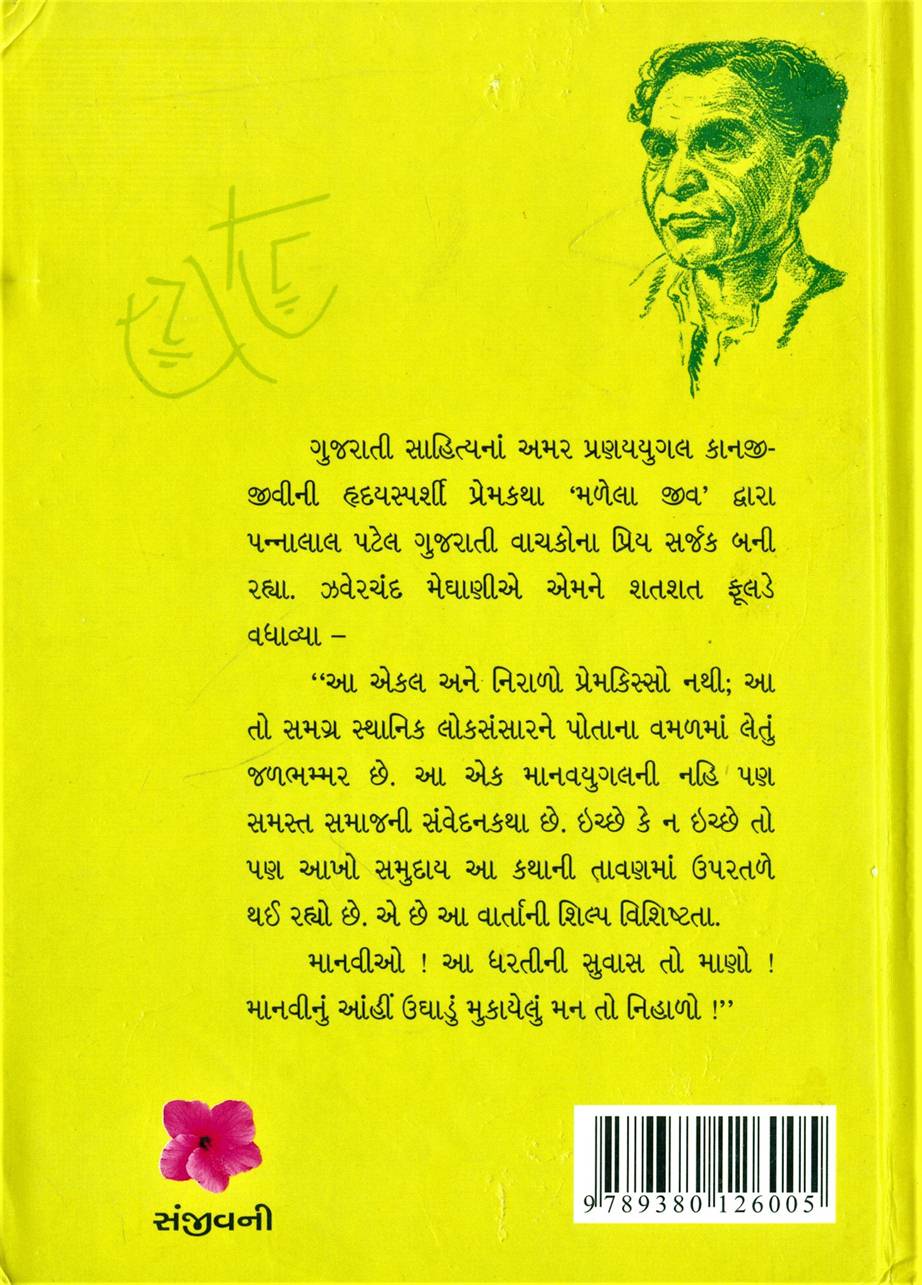 ગુજરાતી સાહિત્યનાં અમર પ્રણયયુગલ કાનજી-
જીવીની હૃદયસ્પર્શી પ્રેમકથા ‘મળેલા જીવ’ દ્વારા
પન્નાલાલ પટેલ ગુજરાતી વાચકોના પ્રિય સર્જક બની
રહ્યા. ઝવેરચંદ મેઘાણીએ એમને શતશત ફૂલડે
વધાવ્યા –
‘‘આ એકલ અને નિરાળો પ્રેમકિસ્સો નથી; આ
તો સમગ્ર સ્થાનિક લોકસંસારને પોતાના વમળમાં લેતું
જળભમ્મર છે. આ એક માનવયુગલની નહિ પણ
સમસ્ત સમાજની સંવેદનકથા છે. ઇચ્છે કે ન ઇચ્છે તો
પણ આખો સમુદાય આ કથાની તાવણમાં ઉપરતળે
થઈ રહ્યો છે. એ છે આ વાર્તાની શિલ્પ વિશિષ્ટતા.
માનવીઓ ! આ ધરતીની સુવાસ તો માણો !
માનવીનું આંહીં ઉઘાડું મુકાયેલું મન તો નિહાળો !’’
સંજીવની
9 789380 126005